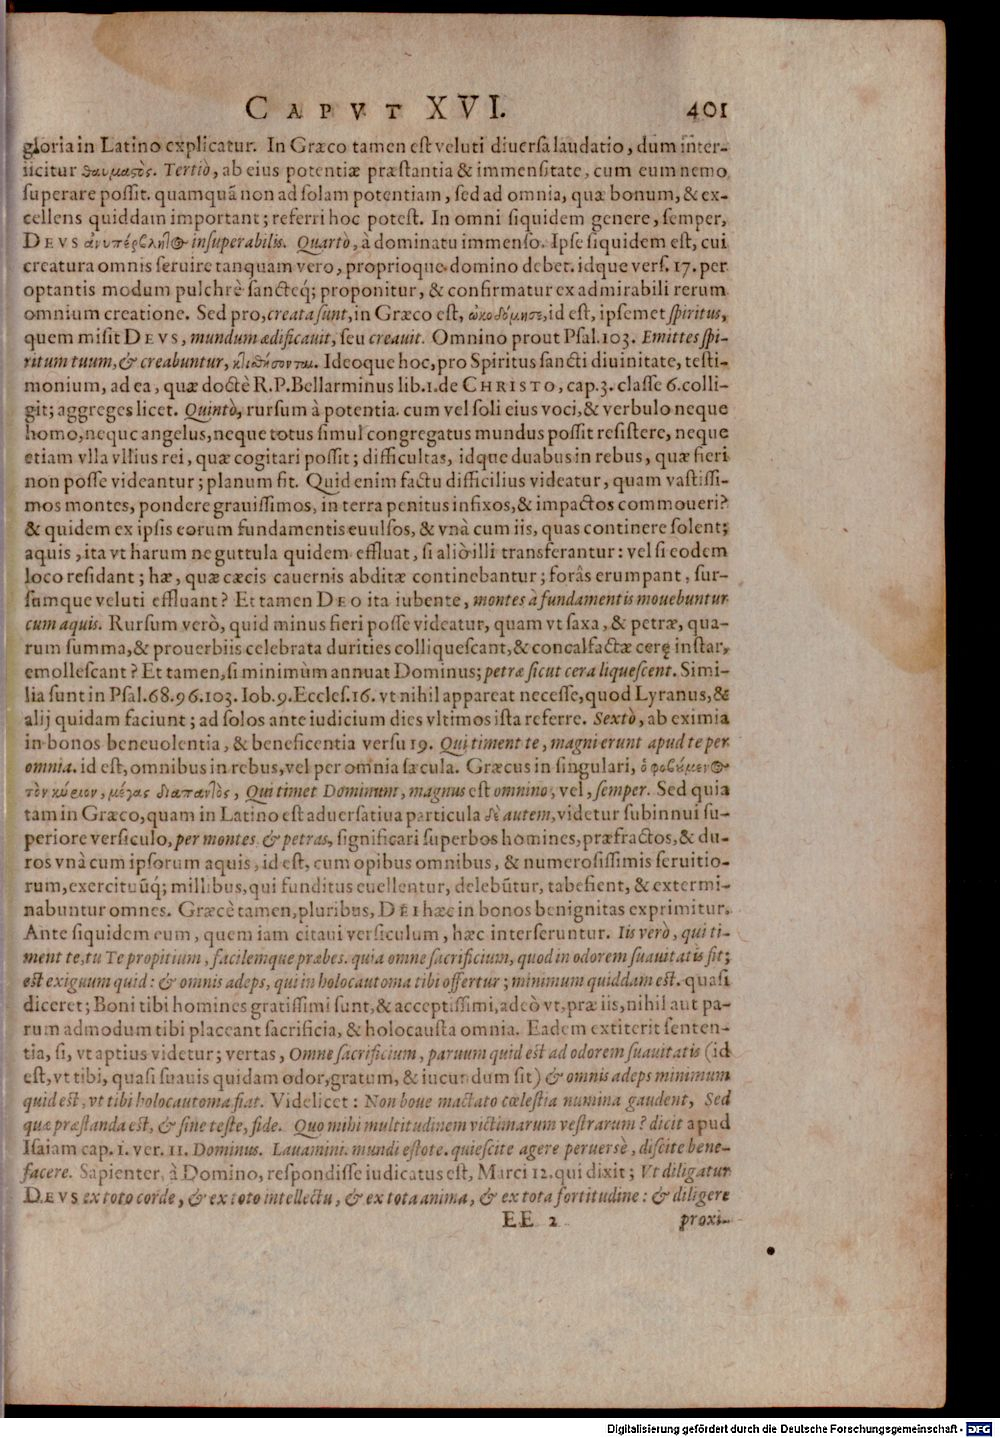 CAPVT XVI. 401
gloria in Latino explicatur. In Græco tamen est veluti diuersa laudatio, dum inter-
iicitur θαυμαστὸς. Tertiò, ab eius potentiæ præstantia & immensitate, cum eum nemo
superare possit. quamquã non ad solam potentiam, sed ad omnia, quæ bonum, & ex-
cellens quiddam important; referri hoc potest. In omni siquidem genere, semper,
DEVS ἀνυπέρβλητος insuperabilis. Quartò, à dominatu immenso. Ipse siquidem est, cui
creatura omnis seruire tanquam vero, proprioque domino debet. idque vers. 17. per
optantis modum pulchrè sanctéq; proponitur, & confirmatur ex admirabili rerum
omnium creatione. Sed pro, creata sunt, in Græco est, ᾠκοδόμησε, id est, ipsemet spiritus,
quem misit DEVS, mundum ædificauit, seu creauit. Omnino prout Psal. 103. Emittes spi-
ritum tuum, & creabuntur, κτισθήσονται. Ideoque hoc, pro Spiritus sancti diuinitate, testi-
monium, ad ea, quæ doctè R.P. Bellarminus lib. 1. de CHRISTO, cap. 3. classe 6. colli-
git; aggreges licet. Quintò, rursum à potentia. cum vel soli eius voci, & verbulo neque
homo, neque angelus, neque totus simul congregatus mundus possit resistere, neque
etiam vlla vllius rei, quæ cogitari possit; difficultas, idque duabus in rebus, quæ fieri
non posse videantur; planum fit. Quid enim factu difficilius videatur, quam vastissi-
mos montes, pondere grauissimos, in terra penitus infixos, & impactos commoueri?
& quidem ex ipsis eorum fundamentis euulsos, & vnà cum iis, quas continere solent;
aquis, ita vt harum ne guttula quidem effluat, si aliò illi transferantur: vel si eodem
loco resideant; hæ, quæ cæcis cauernis abditæ continebantur; forâs erumpant, sur-
sumque veluti effluant? Et tamen DEO ita iubente, montes à fundamentis mouebuntur
cum aquis. Rursum verò, quid minus fieri posse videatur, quam vt saxa, & petræ, qua-
rum summa, & prouerbiis celebrata durities colliquescant, & concalfactæ cerę instar,
emollescant? Et tamen, si minimùm annuat Dominus; petræ sicut cera liquescent. Simi-
lia sunt in Psal. 68. 96. 103. Iob. 9. Eccles. 16. vt nihil appareat necesse, quod Lyranus, &
alij quidam faciunt; ad solos ante iudicium dies vltimos ista referre. Sextò, ab eximia
in bonos beneuolentia, & beneficentia versu 19. Qui timent te, magni erunt apud te per
omnia. id est, omnibus in rebus, vel per omnia sæcula. Græcus in singulari, ὁ φοβούμενος
τὸν κύριον, μέγας διαπαντὸς, Qui timet Dominum, magnus est omnino, vel, semper. Sed quia
tam in Græco, quam in Latino est aduersatiua particula δὲ autem, videtur subinnui su-
periore versiculo, per montes & petras, significari superbos homines, præfractos, & du-
ros vnà cum ipsorum aquis, id est, cum opibus omnibus, & numerosissimis seruitio-
rum, exercituũq; millibus, qui funditus euellentur, delebũtur, tabefient, & extermi-
nabuntur omnes. Græcè tamen, pluribus, DEI hæc in bonos benignitas exprimitur.
Ante siquidem eum, quem iam citaui versiculum, hæc interseruntur. Iis verò, qui ti-
ment te, tu Te propitium, facilemque præbes. quia omne sacrificium, quod in odorem suauitatis fit;
est exiguum quid: & omnis adeps, qui in holocautoma tibi offertur; minimum quiddam est. quasi
diceret; Boni tibi homines gratissimi sunt, & acceptissimi, adeò vt, præ iis, nihil aut pa-
rum admodum tibi placeant sacrificia, & holocausta omnia. Eadem extiterit senten-
tia, si, vt aptius videtur; vertas, Omne sacrificium, paruum quid est ad odorem suauitatis (id
est, vt tibi, quasi suauis quidam odor, gratum, & iucundum sit) & omnis adeps minimum
quid est, vt tibi holocautoma fiat. Videlicet: Non boue mactato cœlestia numina gaudent, Sed
quæ præstanda est, & sine teste, fide. Quo mihi multitudinem victimarum vestrarum? dicit apud
Isaiam cap. 1. ver. 11. Dominus. Lauamini. mundi estote. quiescite agere peruersè, discite bene-
facere. Sapienter, à Domino, respondisse iudicatus est, Marci 12. qui dixit; Vt diligatur
DEVS ex toto corde, & ex toto intellectu, & ex tota anima, & ex tota fortitudine: & diligere
EE 2 proxi-
Digitalisierung gefördert durch die Deutsche Forschungsgemeinschaft - DFG